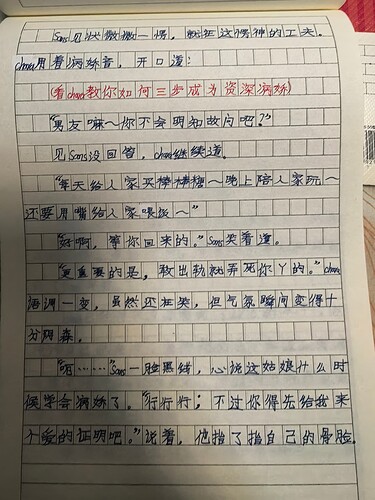 Sans见状微微一愣，就在这愣神的工夫，
chara用着病娇音，开口道：
(看chara教你如何三步成为资深病娇)
"男友嘛～你不会明知故问吧？"
见Sans没回答，chara继续道，
"每天给人家买棒棒糖～晚上陪人家玩～
还要用嘴给人家喂饭～"
"好啊，等你回来的。"Sans笑着道。
"更重要的是，敢出轨就弄死你丫的。"chara
语调一变，虽然还在笑，但气氛瞬间变得十
分阴森。
"呵……"Sans一脸黑线，心说这姑娘什么时
候学会病娇了。"行行行；不过你得先给我来
个爱的证明吧。"说着，他指了指自己的骨脸。